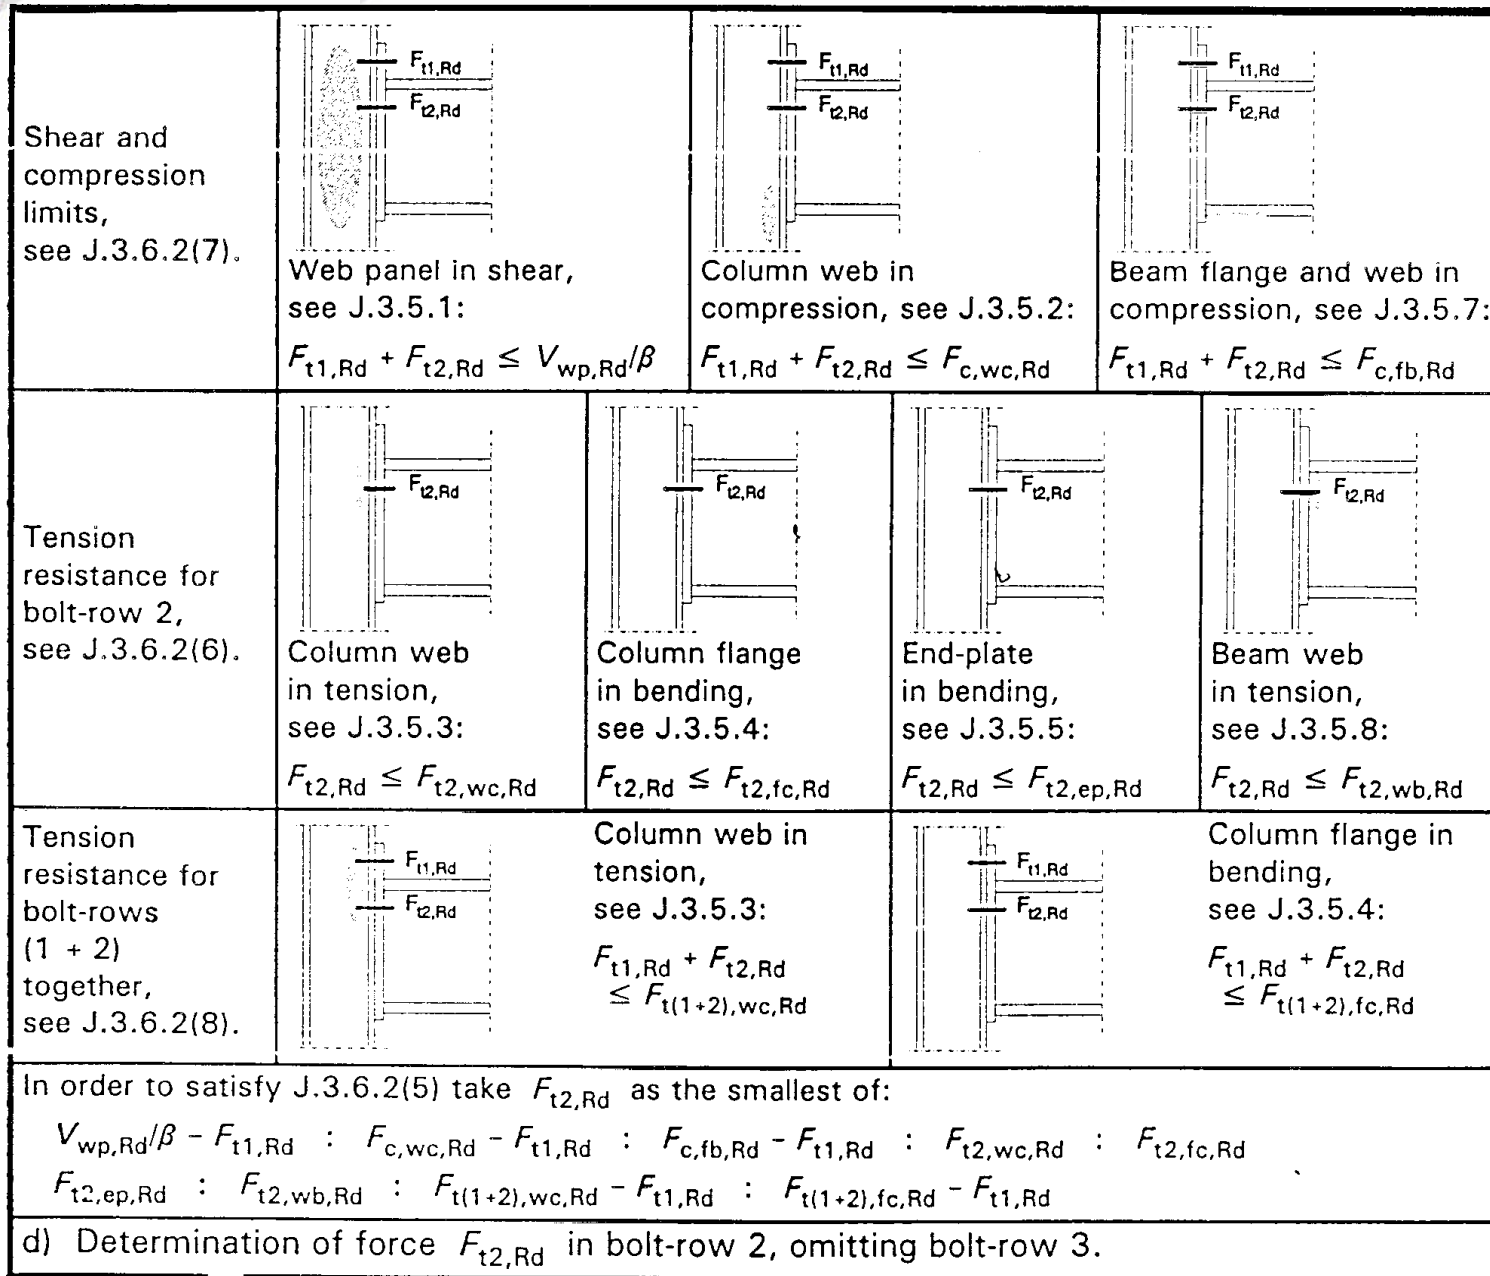 Shear and
compression
limits,
see J.3.6.2(7).
Ft1,Rd
Ft2,Rd
Web panel in shear,
see J.3.5.1:
Ft1,Rd + Ft2,Rd ≤ Vwp,Rd/β
Ft1,Rd
Ft2,Rd
Column web in
compression, see J.3.5.2:
Ft1,Rd + Ft2,Rd ≤ Fc,wc,Rd
Ft1,Rd
Ft2,Rd
Beam flange and web in
compression, see J.3.5.7:
Ft1,Rd + Ft2,Rd ≤ Fc,fb,Rd
Tension
resistance for
bolt-row 2,
see J.3.6.2(6).
Ft2,Rd
Column web
in tension,
see J.3.5.3:
Ft2,Rd ≤ Ft2,wc,Rd
Ft2,Rd
Column flange
in bending,
see J.3.5.4:
Ft2,Rd ≤ Ft2,fc,Rd
Ft2,Rd
End-plate
in bending,
see J.3.5.5:
Ft2,Rd ≤ Ft2,ep,Rd
Ft2,Rd
Beam web
in tension,
see J.3.5.8:
Ft2,Rd ≤ Ft2,wb,Rd
Tension
resistance for
bolt-rows
(1 + 2)
together,
see J.3.6.2(8).
Ft1,Rd
Ft2,Rd
Column web in
tension,
see J.3.5.3:
Ft1,Rd + Ft2,Rd
≤ Ft(1+2),wc,Rd
Ft1,Rd
Ft2,Rd
Column flange in
bending,
see J.3.5.4:
Ft1,Rd + Ft2,Rd
≤ Ft(1+2),fc,Rd
In order to satisfy J.3.6.2(5) take Ft2,Rd as the smallest of:
Vwp,Rd/β - Ft1,Rd : Fc,wc,Rd - Ft1,Rd : Fc,fb,Rd - Ft1,Rd : Ft2,wc,Rd : Ft2,fc,Rd
Ft2,ep,Rd : Ft2,wb,Rd : Ft(1+2),wc,Rd - Ft1,Rd : Ft(1+2),fc,Rd - Ft1,Rd
d) Determination of force Ft2,Rd in bolt-row 2, omitting bolt-row 3.